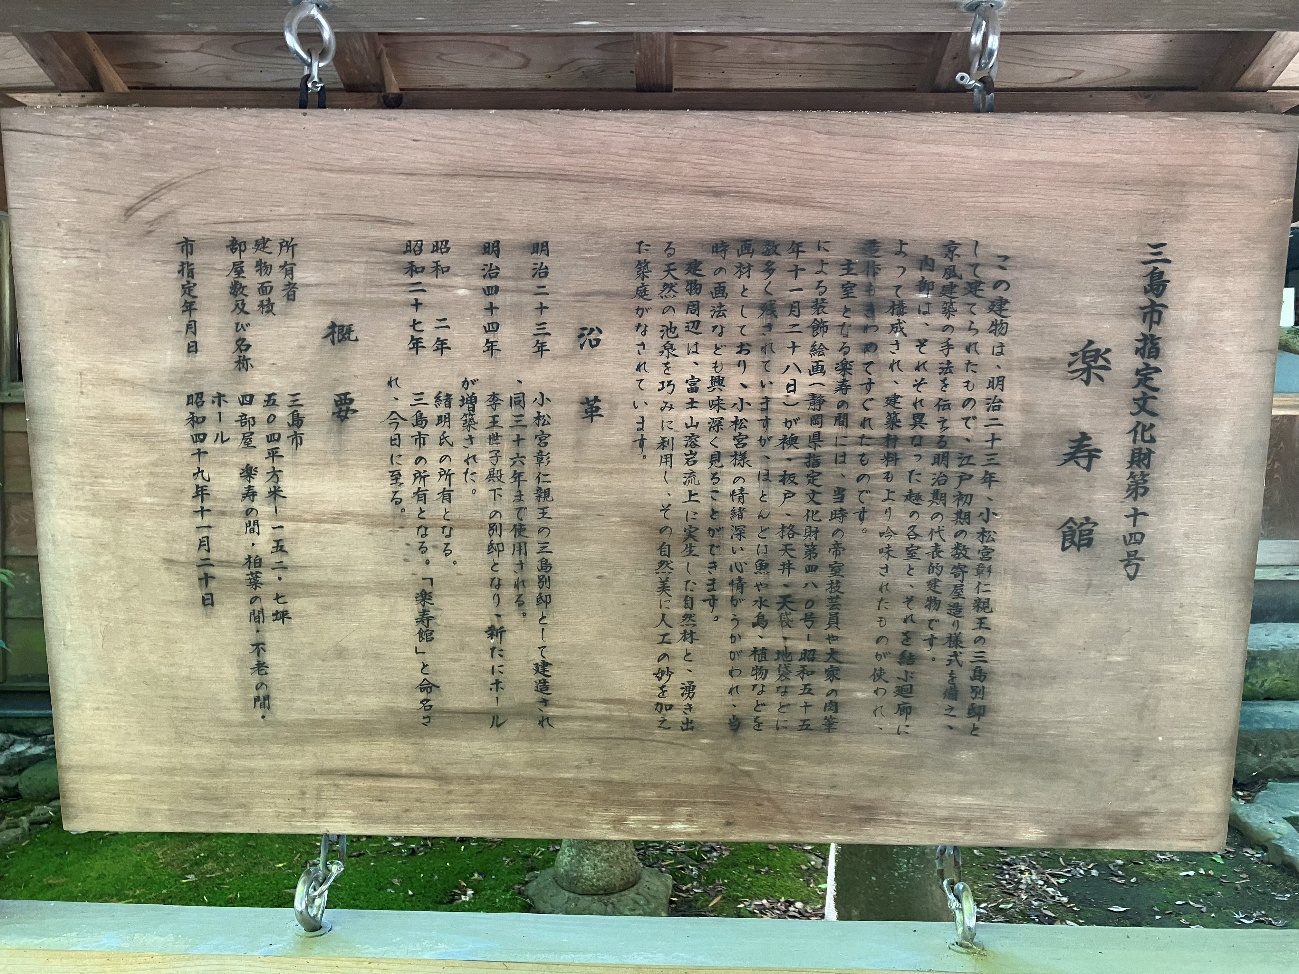 三島市指定文化財第十四号
楽寿館
この建物は、明治二十三年、小松宮彰仁親王の三島別邸と
して建てられたもので、江戸初期の数寄屋造り様式を備え、
京風建築の手法を伝える明治期の代表的建物です。
内部は、それぞれ異なった趣の各室と、それを結ぶ廻廊に
よって構成され、建築材料もより吟味されたものが使われ、
造作もきわめてすぐれたものです。
主室となる楽寿の間には、当時の帝室技芸員や大家の肉筆
による装飾絵画(静岡県指定文化財第四八〇号-昭和五十五
年十一月二十八日)が襖・板戸・格天井・天袋・地袋などに
数多く残されていますが、ほとんどは魚や水鳥、植物などを
画材としており、小松宮様の情緒深い心情がうかがわれ、当
時の画法なども興味深く見ることができます。
建物周辺は、富士山溶岩流上に実生した自然林と、湧き出
る天然の池泉を巧みに利用し、その自然美に人工の妙を加え
た築庭がなされています。
沿革
明治二十三年 小松宮彰仁親王の三島別邸として建造され
、同三十六年まで使用される。
明治四十四年 李王世子殿下の別邸となり、新たにホール
が増築された。
昭和 二年 緒明氏の所有となる。
昭和二十七年 三島市の所有となる。「楽寿館」と命名さ
れ、今日に至る。
概要
所有者 三島市
建物面積 五〇四平方米-一五二・七坪
部屋数及び名称 四部屋 楽寿の間・柏葉の間・不老の間・
ホール
市指定年月日 昭和四十九年十一月二十日